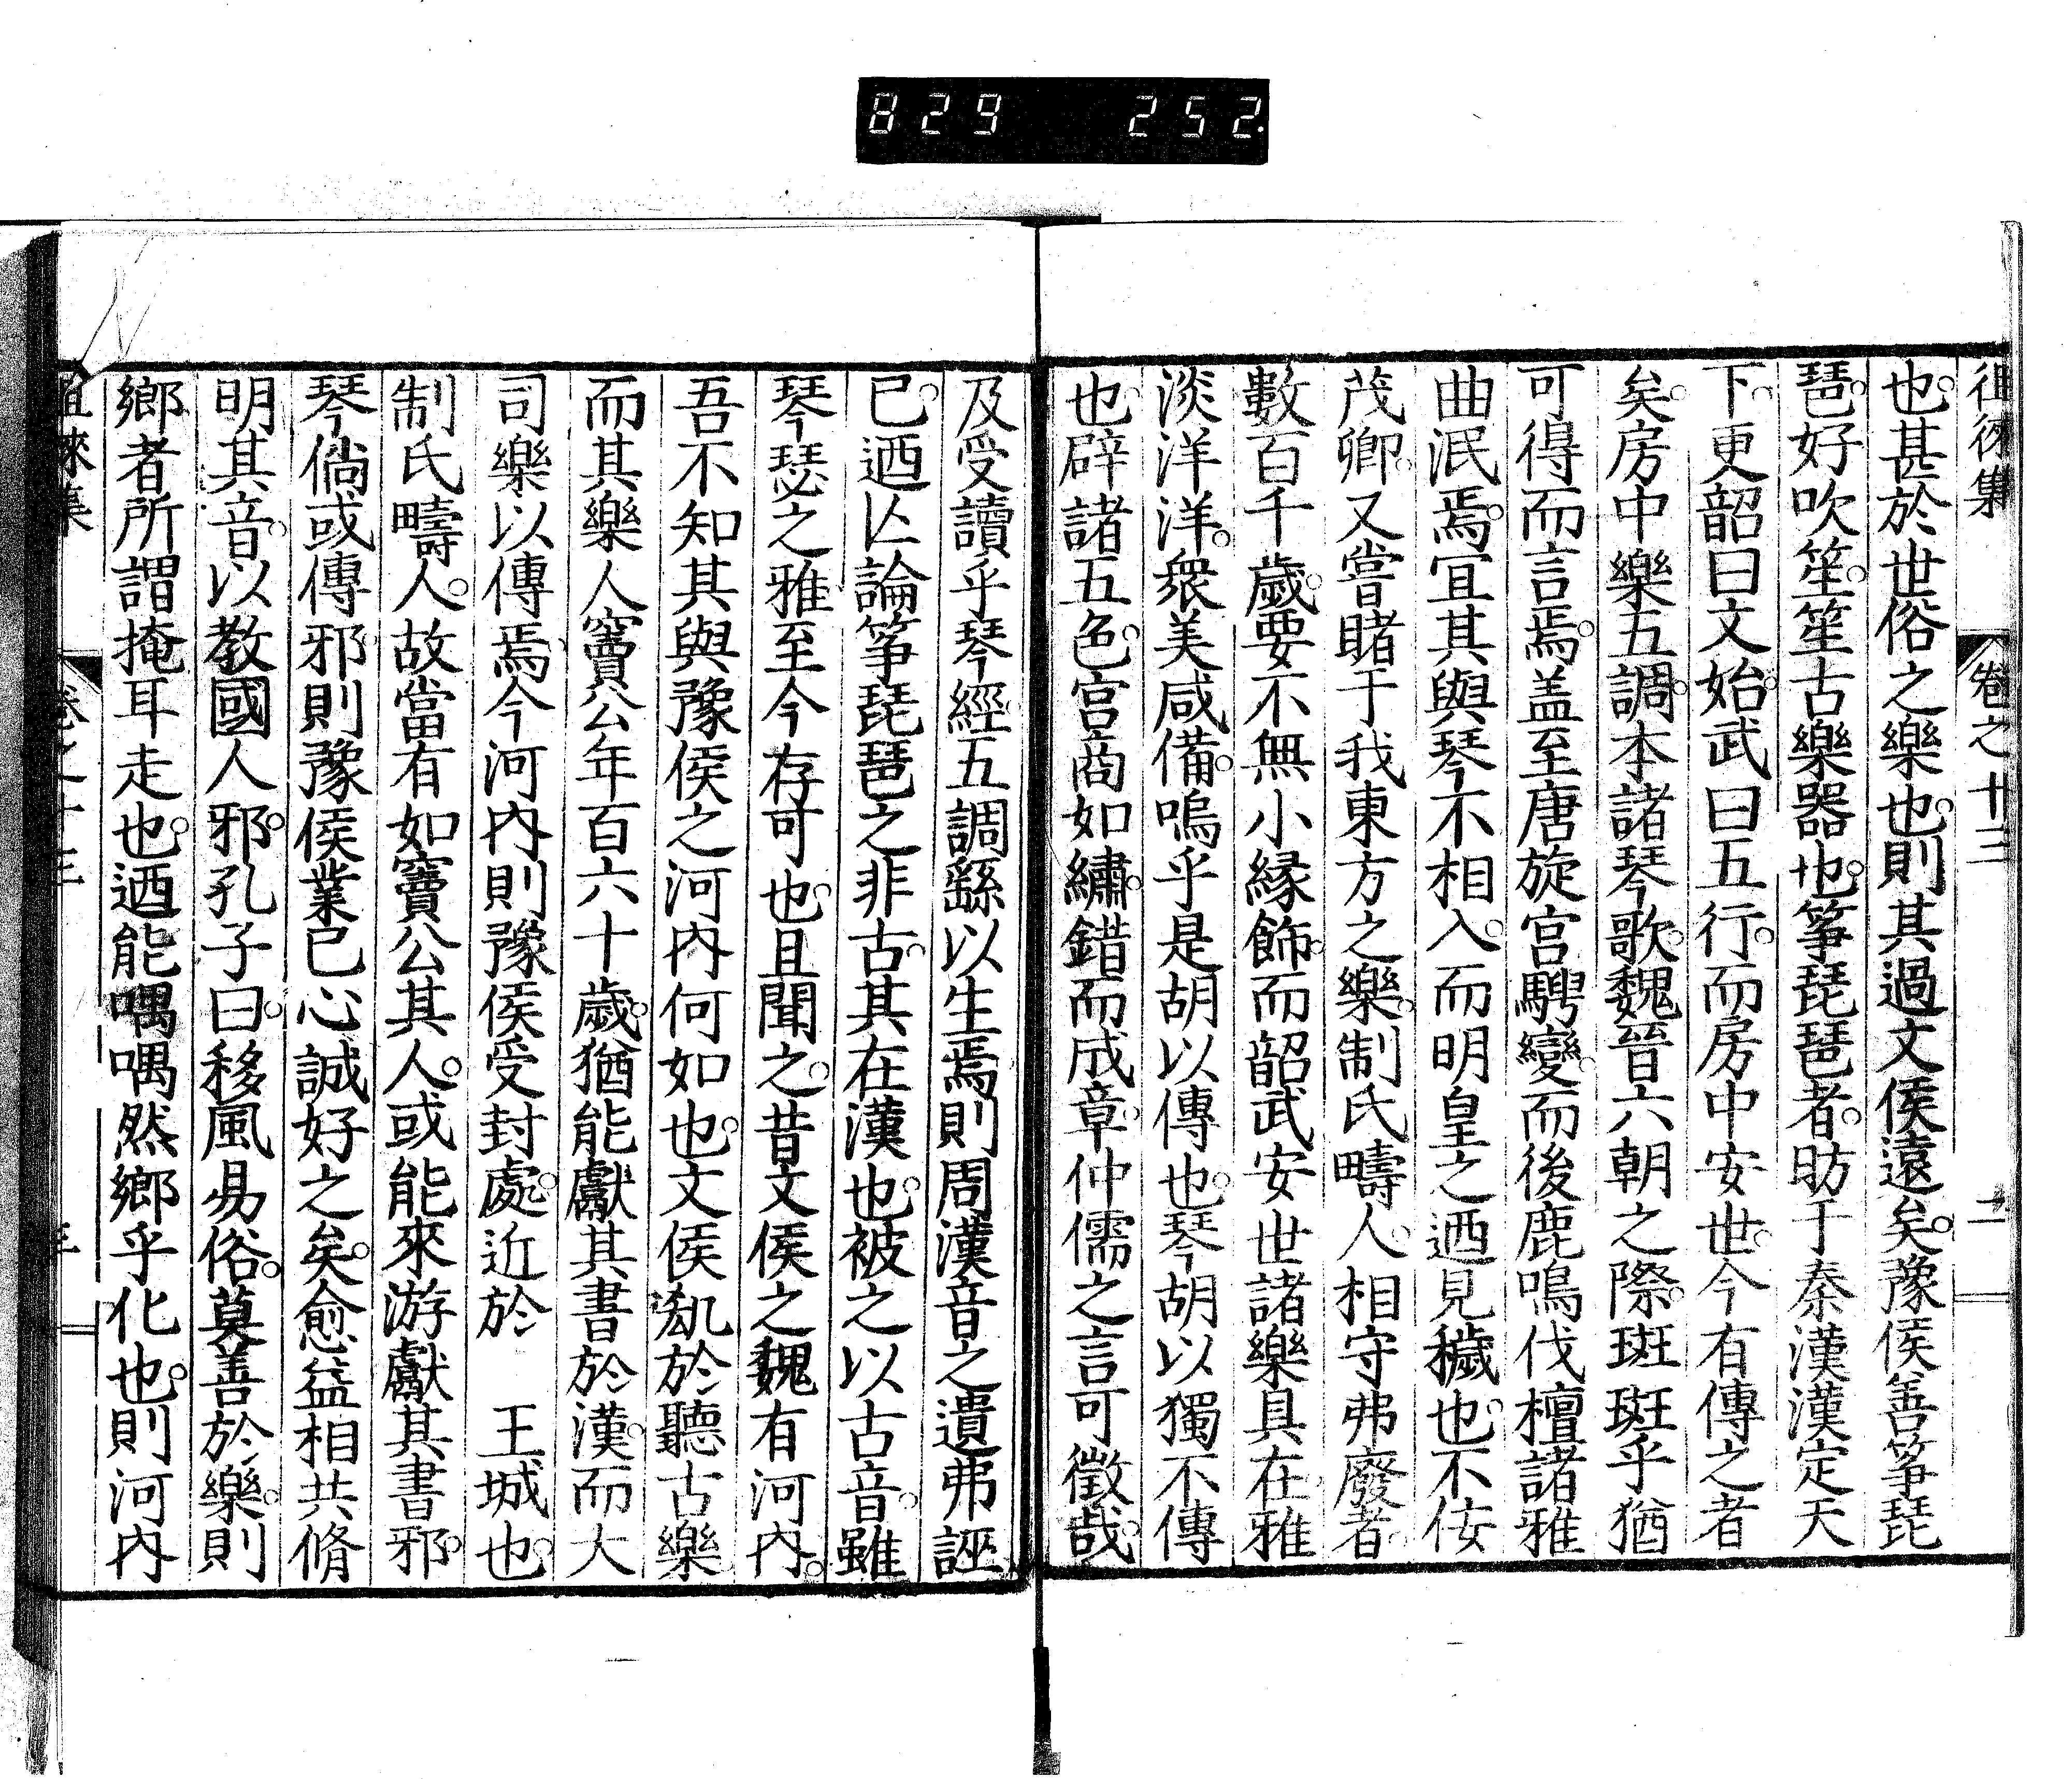 829 252
徂徠集 卷之十三 二
也甚於世俗之樂也則其過文侯遠矣豫侯善筝琵
琶好吹笙笙古樂器也筝琵琶者昉于秦漢漢定天
下更韶曰文始武曰五行而房中安世今有傳之者
矣房中樂五調本諸琴歌魏晉六朝之際斑斑乎猶
可得而言焉盖至唐旋宮騁變而後鹿鳴伐檀諸雅
曲泯焉宜其與琴不相入而明皇之迺見穢也不佞
茂卿又嘗睹于我東方之樂制氏疇人相守弗廢者
數百千歲要不無小緣飾而韶武安世諸樂具在雅
淡洋洋衆美咸備嗚乎是胡以傳也琴胡以獨不傳
也辟諸五色宮商如繡錯而成章仲儒之言可徵哉
及受讀乎琴經五調繇以生焉則周漢音之遺弗誣
已迺亾論筝琵琶之非古其在漢也被之以古音雖
琴瑟之雅至今存可也且聞之昔文侯之魏有河內
吾不知其與豫侯之河內何如也文侯𠢐於聽古樂
而其樂人竇公年百六十歲猶能獻其書於漢而大
司樂以傳焉今河內則豫侯受封處近於 王城也
制氏疇人故當有如竇公其人或能來游獻其書邪
琴倘或傳邪則豫侯業已心誠好之矣愈益相共脩
明其音以教國人邪孔子曰移風易俗莫善於樂則
鄉者所謂掩耳走也迺能喁喁然鄉乎化也則河內
徂徠集 卷之十三